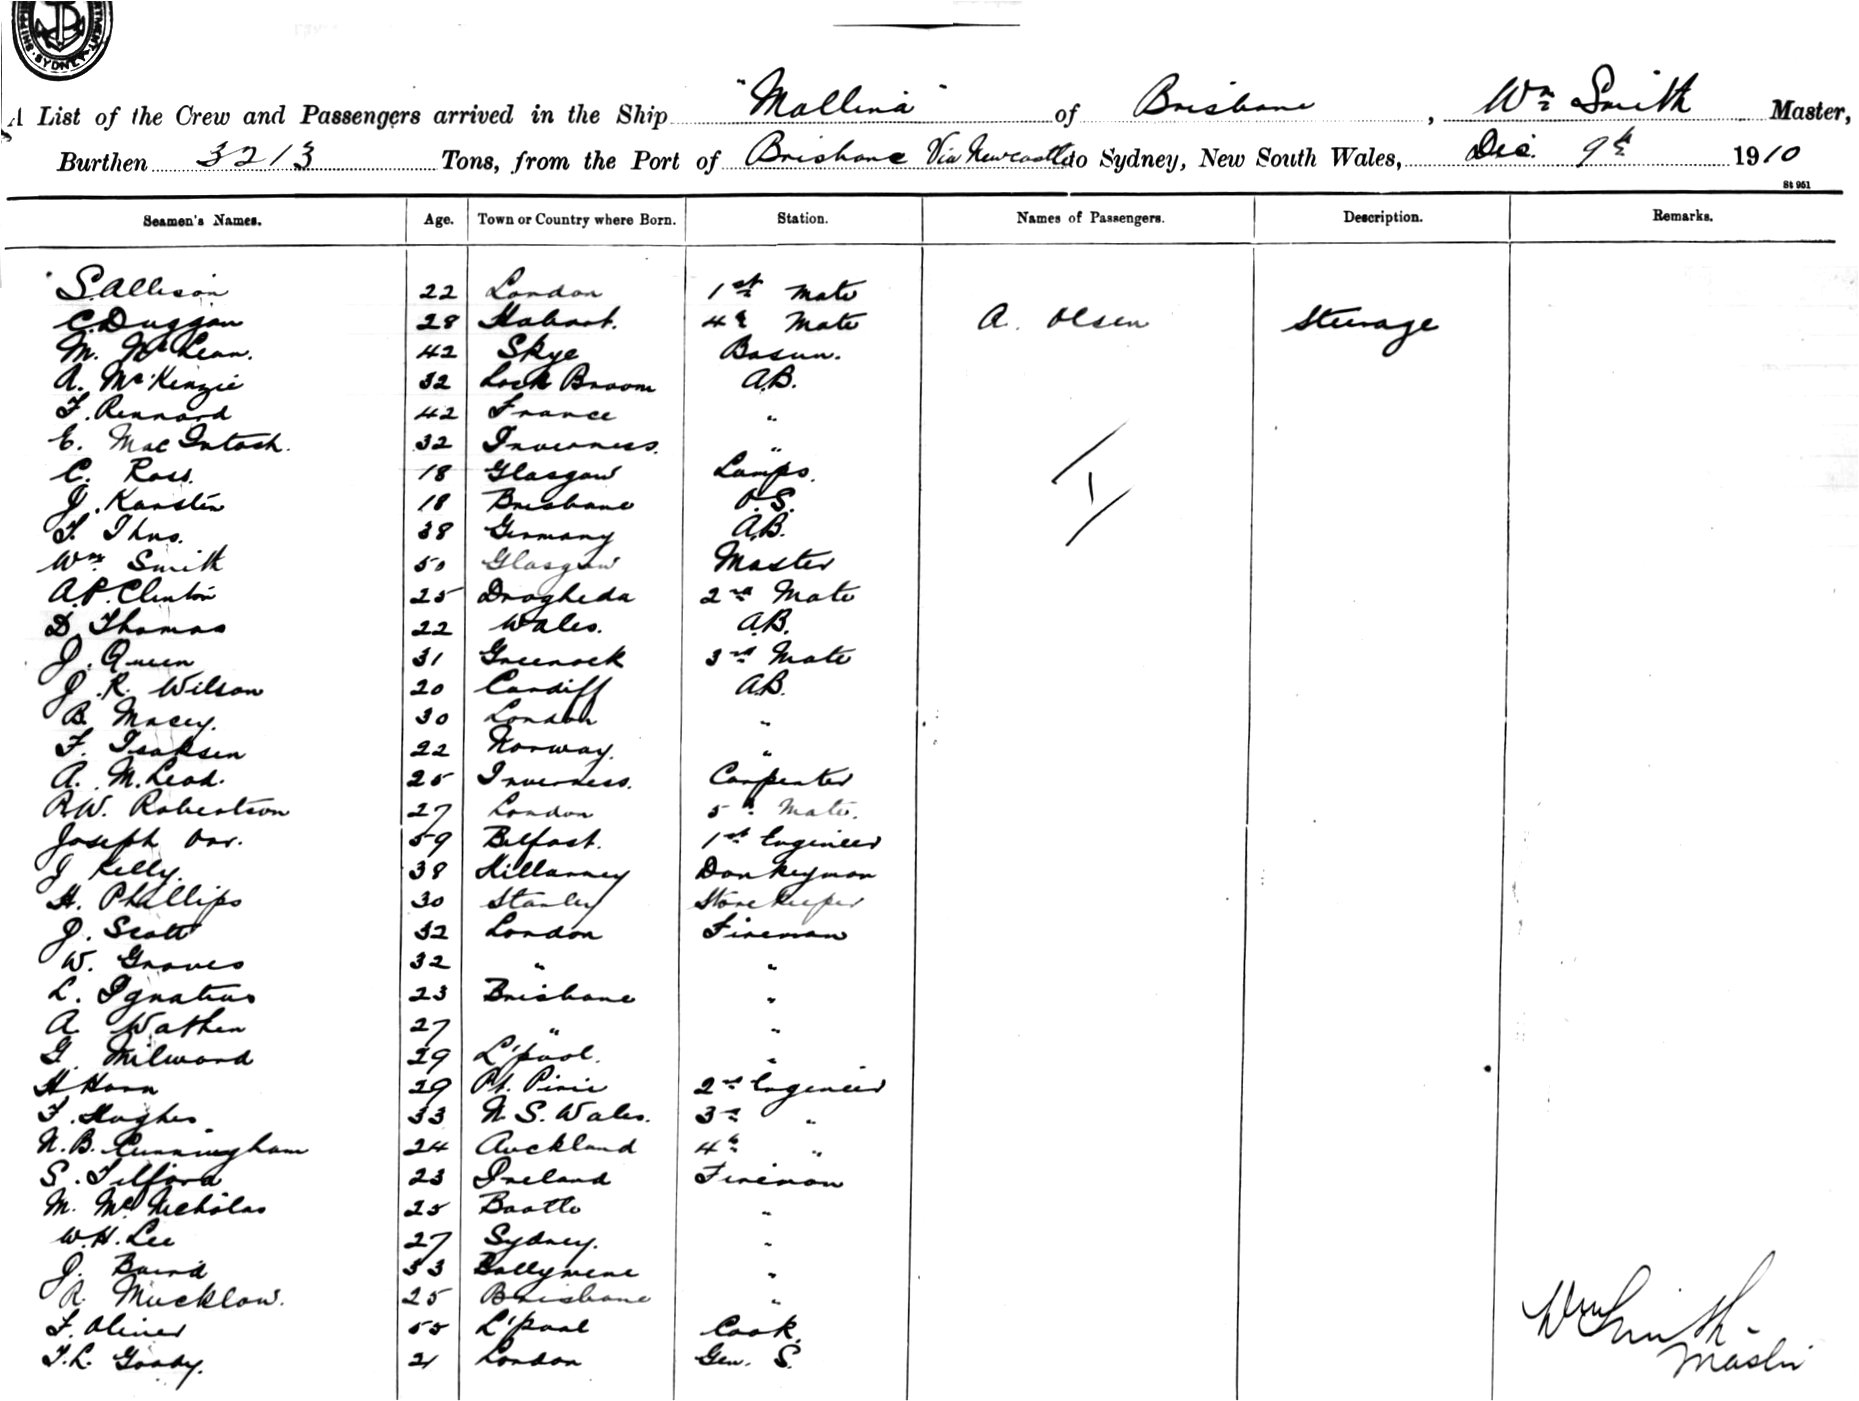 SYDNEY
A List of the Crew and Passengers arrived in the Ship "Mallina" of Brisbane, Wm Smith Master,
Burthen 3213 Tons, from the Port of Brisbane Via Newcastle to Sydney, New South Wales, Dec. 9th 1910
St 951
Seamen's Names. Age. Town or Country where Born. Station. Names of Passengers. Description. Remarks.
S. Allison 22 London 1st Mate
C. Duggan 28 Hobart. 4th Mate A. Olsen Steerage
M. McLean. 42 Skye Bosun.
A. McKenzie 32 Loch Broom A.B.
F. Rennard 42 France "
E. MacIntosh. 32 Inverness. "
C. Ross. 18 Glasgow Lamps.
J. Karsten 18 Brisbane O.S.
F. 38 Germany A.B.
Wm Smith 50 Glasgow Master
A.P. Clinton 25 Drogheda 2nd Mate
D. Thomas 22 Wales. A.B.
J. Queen 31 Greenock 3rd Mate
J. R. Wilson 20 Cardiff A.B.
B. Macey. 30 London "
F. Isaksen 22 Norway. "
A. McLeod. 25 Inverness. Carpenter
R.W. Robertson 27 London 5th Mate.
Joseph Orr. 59 Belfast. 1st Engineer
J Kelly. 38 Killarney Donkeyman
H. Phillips 30 Stanley Storekeeper
J. Scott 32 London Fireman
W. Graves 32 " "
L. Ignatius 23 Brisbane "
A. Wathen 27 " "
G. Milward 29 L'pool. "
H Horn 29 Pt. Pirie 2nd Engineer
F. Hughes. 33 N. S. Wales. 3rd "
N. B. Cunningham 24 Auckland 4th "
S. Telford 23 Ireland Fireman
M. McNicholas 25 Bootle "
W. H. Lee 27 Sydney. "
J. Baird 33 Ballymena "
R. Mucklow. 25 Brisbane "
F. Oliver 55 L'pool Cook.
T. L. Goody. 21 London Gen. S.
Wm Smith
Master